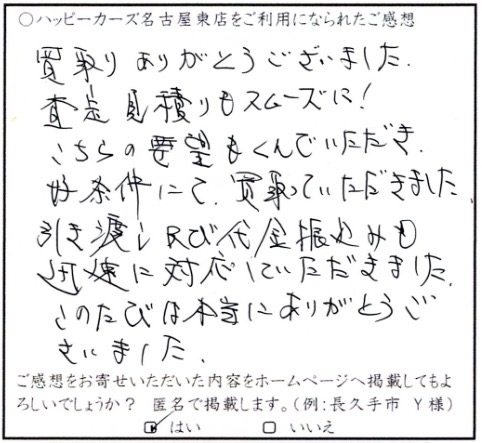 ○ハッピーカーズ名古屋東店をご利用になられたご感想
買取りありがとうございました.
査定見積りもスムーズに!
こちらの要望もくんでいただき.
好条件にて.買取っていただきました.
引き渡し及び代金振込みも
迅速に対応していただきました.
このたびは本当にありがとうご
ざいました.
ご感想をお寄せいただいた内容をホームページへ掲載してもよ
ろしいでしょうか? 匿名で掲載します。(例:長久手市 Y様)
☑ はい □ いいえ